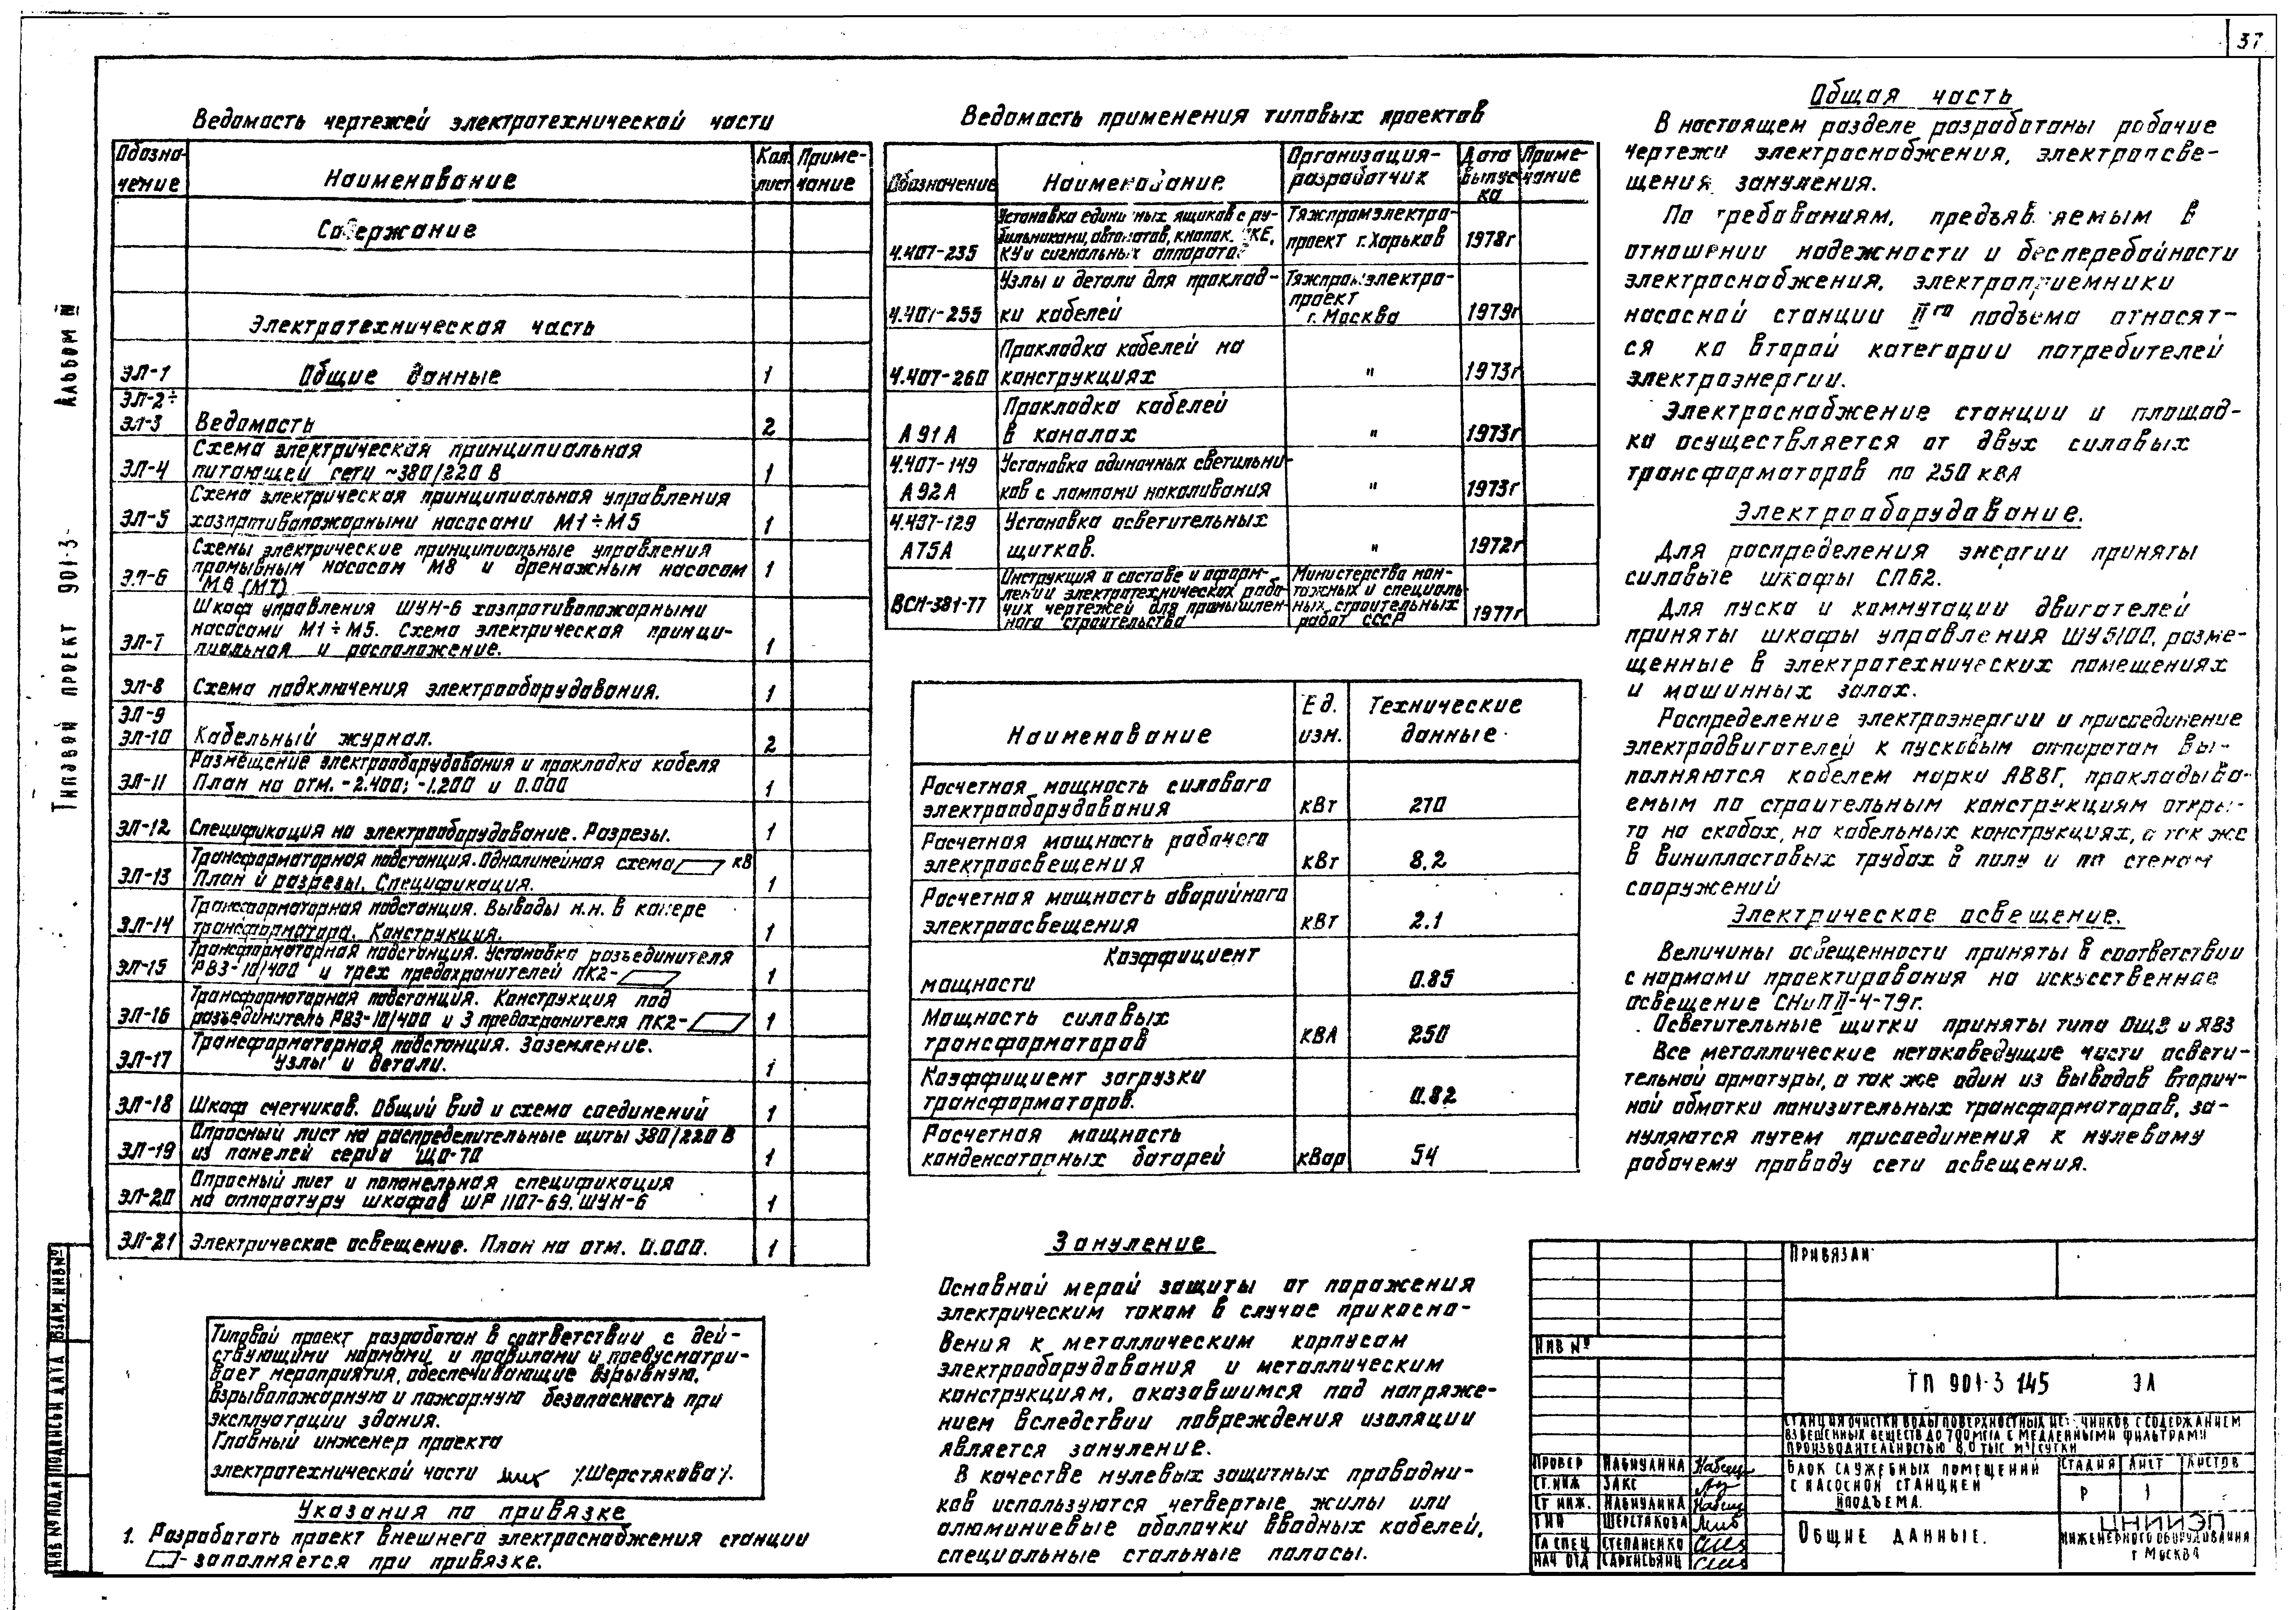 37
Альбом IV
Типовой проект 901-3-
Ведомость чертежей электротехнической части
Обозна-чение Наименование Кол. лист Приме-чание
Содержание
Электротехническая часть
ЭЛ-1 Общие данные 1
ЭЛ-2÷
ЭЛ-3 Ведомость 2
Схема электрическая принципиальная
ЭЛ-4 питающей сети ~380/220 В 1
Схема электрическая принципиальная управления
ЭЛ-5 хозпротивопожарными насосами М1÷М5 1
Схемы электрические принципиальные управления
промывным насосом М8 и дренажным насосом
ЭЛ-6 М6 (М7) 1
Шкаф управления ШУН-6 хозпротивопожарными
насосами М1÷М5. Схема электрическая принци-
ЭЛ-7 пиальная и расположение. 1
ЭЛ-8 Схема подключения электрооборудования. 1
ЭЛ-9
ЭЛ-10 Кабельный журнал. 2
Размещение электрооборудования и прокладка кабеля
ЭЛ-11 План на отм. -2.400; -1.200 и 0.000 1
ЭЛ-12 Спецификация на электрооборудование. Разрезы. 1
Трансформаторная подстанция. Однолинейная схема кВ
ЭЛ-13 План и разрезы. Спецификация. 1
Трансформаторная подстанция. Выводы н.н. в камере
ЭЛ-14 трансформатора. Конструкция. 1
Трансформаторная подстанция. Установка разъединителя
ЭЛ-15 РВЗ-10/400 и трех предохранителей ПК2- 1
Трансформаторная подстанция. Конструкция под
ЭЛ-16 разъединитель РВЗ-10/400 и 3 предохранителя ПК2- 1
Трансформаторная подстанция. Заземление.
ЭЛ-17 Узлы и детали. 1
ЭЛ-18 Шкаф счетчиков. Общий вид и схема соединений 1
Опросный лист на распределительные щиты 380/220 В
ЭЛ-19 из панелей серии ЩО-70 1
Опросный лист и попанельная спецификация
ЭЛ-20 на аппаратуру шкафов ШР 1107-69, ШУН-6 1
ЭЛ-21 Электрическое освещение. План на отм. 0.000. 1
Типовой проект разработан в соответствии с дей-
ствующими нормами и правилами и предусматри-
вает мероприятия, обеспечивающие взрывную,
взрывопожарную и пожарную безопасность при
эксплуатации здания.
Главный инженер проекта
электротехнической части /Шерстякова/.
Указания по привязке
1. Разработать проект внешнего электроснабжения станции
- заполняется при привязке.
Ведомость применения типовых проектов
Обозначение Наименование Организация-разработчик Дата выпус-ка Приме-чание
Установка единичных ящиков с ру- Тяжпромэлектро-
бильниками, автоматов, кнопок ПКЕ, проект г.Харьков 1978г
4.407-235 КУ и сигнальных аппаратов
Узлы и детали для проклад- Тяжпромэлектро-
проект
4.407-255 ки кабелей г. Москва 1979г
Прокладка кабелей на
4.407-260 конструкциях " 1973г
Прокладка кабелей
А91А в каналах " 1973г
4.407-149 Установка одиночных светильни-
А92А ков с лампами накаливания " 1973г
4.407-129 Установка осветительных
А75А щитков. " 1972г
Инструкция о составе и оформ- Министерство мон-
лении электротехнических рабо- тажных и специаль-
ВСН-381-77 чих чертежей для промышлен- ных строительных 1977г
ного строительства работ СССР
Наименование Ед. изм. Технические данные
Расчетная мощность силового
электрооборудования кВт 270
Расчетная мощность рабочего
электроосвещения кВт 8.2
Расчетная мощность аварийного
электроосвещения кВт 2.1
Коэффициент
мощности 0.85
Мощность силовых
трансформаторов кВА 250
Коэффициент загрузки
трансформаторов. 0.82
Расчетная мощность
конденсаторных батарей кВар 54
Зануление
Основной мерой защиты от поражения
электрическим током в случае прикосно-
вения к металлическим корпусам
электрооборудования и металлическим
конструкциям, оказавшимся под напряже-
нием вследствии повреждения изоляции
является зануление.
В качестве нулевых защитных проводни-
ков используются четвертые жилы или
алюминиевые оболочки вводных кабелей,
специальные стальные полосы.
Общая часть
В настоящем разделе разработаны рабочие
чертежи электроснабжения, электроосве-
щения, зануления.
По требованиям, предъявляемым в
отношении надежности и бесперебойности
электроснабжения, электроприемники
насосной станции IIго подъема относят-
ся ко второй категории потребителей
электроэнергии.
Электроснабжение станции и площад-
ки осуществляется от двух силовых
трансформаторов по 250 кВА
Электрооборудование.
Для распределения энергии приняты
силовые шкафы СП62.
Для пуска и коммутации двигателей
приняты шкафы управления ШУ5100, разме-
щенные в электротехнических помещениях
и машинных залах.
Распределение электроэнергии и присоединение
электродвигателей к пусковым аппаратам вы-
полняются кабелем марки АВВГ, прокладыва-
емым по строительным конструкциям откры-
то на скобах, на кабельных конструкциях, а так же
в винипластовых трубах в полу и по стенам
сооружений
Электрическое освещение.
Величины освещенности приняты в соответствии
с нормами проектирования на искусственное
освещение СНиП II-4-79г.
Осветительные щитки приняты типа ОЩВ и ЯВЗ
Все металлические нетоковедущие части освети-
тельной арматуры, а так же один из выводов вторич-
ной обмотки понизительных трансформаторов, за-
нуляются путем присоединения к нулевому
рабочему проводу сети освещения.
Привязан
Инв №
ТП 901-3 145 ЭЛ
Станция очистки воды поверхностных источников с содержанием
взвешенных веществ до 700 мг/л с медленными фильтрами
производительностью 8,0 тыс м³/сутки
Провер Набиулина
Ст.инж Закс
Ст инж. Набиулина
ГИП Шерстякова
Гл спец Степаненко
Нач отд Саркисьянц
Блок служебных помещений
с насосной станцией
II подъема.
Стадия Лист Листов
Р 1
Общие данные.
ЦНИИЭП
инженерного оборудования
г Москва
Инв № подл Подпись и дата Взам. инв №